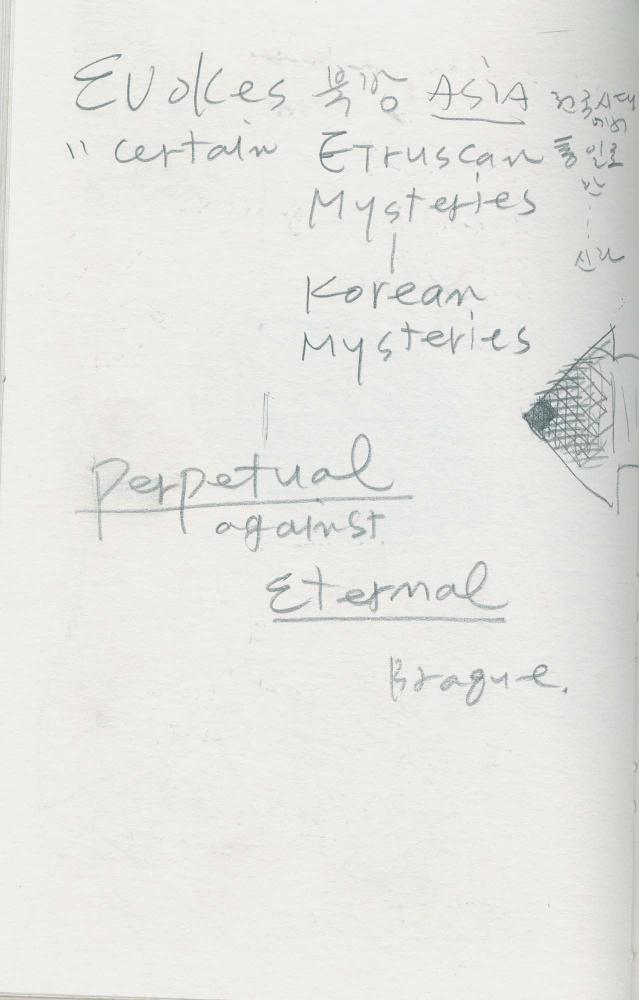 Evokes 북강 ASiA
" certain Etruscan
Mysteries
Korean
Mysteries
전국시대
에서
통일로
반
신라
Perpetual
against
Eternal
Braque.